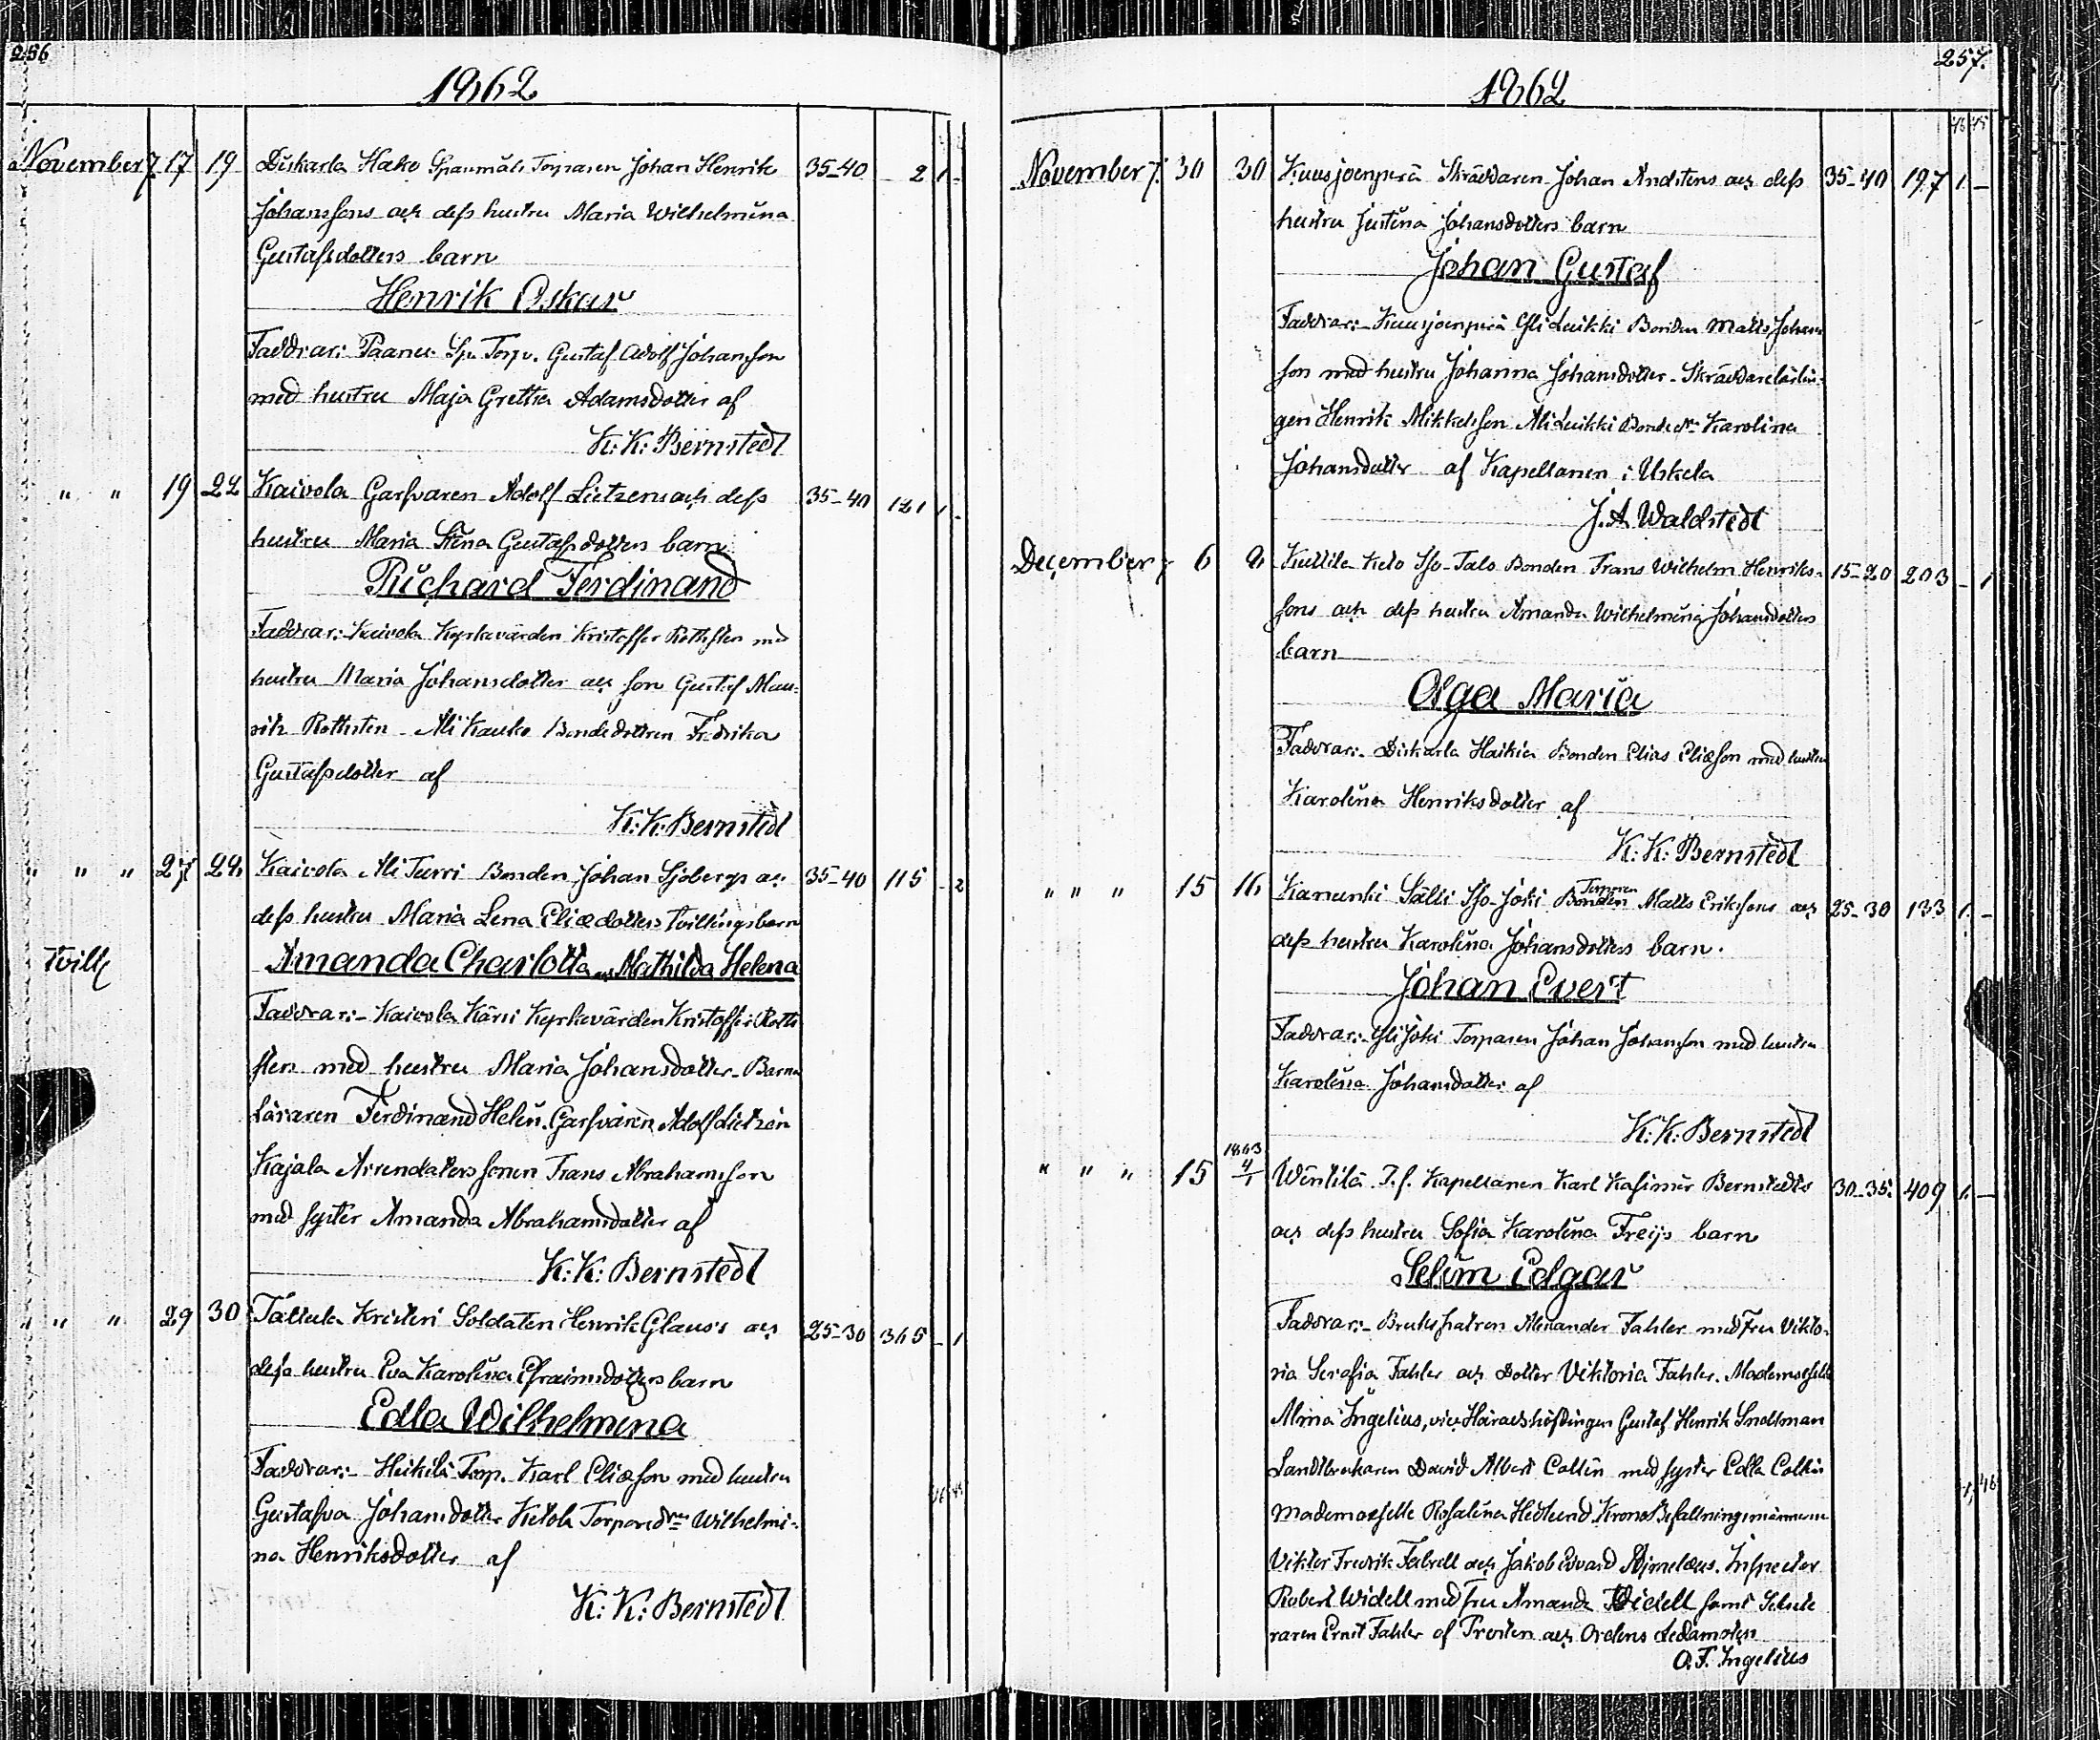 256
1862
November 7. 17 19 Diskarla Hako Spanmåls Torparen Johan Henrik 35-40 2 1 -
Johanssons och dess hustru Maria Wilhelmina
Gustafsdotters barn
Henrik Oskar
Faddrar: Paanu Sp. Torp. Gustaf Adolf Johansson
med hustru Maja Gretha Adamsdotter af
K: K: Bernstedt
" " 19 22 Kaivola Garfvaren Adolf Lietzens och dess 35-40 121 1 -
hustru Maria Stina Gustafsdotters barn
Richard Ferdinand
Faddrar: Kaivola Kyrkovärden Kristoffer Rothsten med
hustru Maria Johansdotter och son Gustaf Mau-
ritz Rothsten - Ali Kauko Bondedottren Fredrika
Gustafsdotter af
K: K: Bernstedt
" " " 27 28 Kaivola Ali Turri Bonden Johan Sjöbergs och 35-40 115 - 2
dess hustru Maria Lena Eliædotters Tvillingsbarn
Tvill
Amanda Charlotta och Mathilda Helena
Faddrar:- Kaivola Kärri Kyrkovärden Kristoffer Roth
sten med hustru Maria Johansdotter - Barna
Läraren Ferdinand Helin. Garfvaren Adolf Lietzén
Kajala Arrendators sonen Frans Abrahamsson
med syster Amanda Abrahamsdotter af
K: K: Bernstedt
" " " 29 30 Tattula Kristeri Soldaten Henrik Glans's och 25-30 365 - 1
dess hustru Eva Karolina Efraimsdotters barn
Edla Wilhelmina
Faddrar:- Heikilä Torp. Karl Eliæson med hustru
Gustafva Johansdotter Ketola Torpared:n Wilhelmi-
na Henriksdotter af
K: K: Bernstedt
257.
1862
November 7. 30 30 Kuusjoenperä Skräddaren Johan Andstens och dess 35-40 197 1 -
hustru Justina Johansdotters barn
Johan Gustaf
Faddrar:- Kuusjoenperä Yli Luikki Bonden Matts Johans
son med hustru Johanna Johansdotter - Skräddarelärlin-
gen Henrik Mikkelsson Ali Luikki Bonded:n Karolina
Johansdotter af Kapellanen i Uskela
J. A. Waldstedt
December 7. 6 8 Kuttila Keto Iso-Talo Bonden Frans Wilhelm Henriks- 15-20 203 - 1
sons och dess hustru Amanda Wilhelmina Johansdotters
barn
Olga Maria
Faddrar:- Diskarla Haikia Bonden Elias Eliæson med hustru
Karolina Henriksdotter af
K: K: Bernstedt
Torparen
" " " 15 16 Kanunki Sälli Iso-Joki Bonden Matts Erikssons och 25-30 133 1 -
dess hustru Karolina Johansdotters barn.
Johan Evert
Faddrar:- Yli Joki Torparen Johan Johansson med hustru
Karolina Johansdotter af
K: K: Bernstedt
1863
" " " 15 4/1 Wäntilä T. f. Kapellanen Karl Kasimir Bernstedts 30-35. 409 1. -
och dess hustru Sofia Karolina Freijs barn
Selim Edgar
Faddrar:- Brukspatron Alexander Fahler med Fru Vikto-
ria Serafia Fahler och Dotter Viktoria Fahler. Mademoiselle
Alma Ingelius, vice Häradshöfdingen Gustaf Henrik Snellman
Landtbrukaren David Albert Collin med syster Edla Collin
Mademoiselle Rosalina Hedlund Krono Befallningsmännen
Viktor Fredrik Fabrell och Jakob Edvard Inspector
Robert Widell med Fru Amanda Widell samt
Ernst Fahler af Prosten och Ordens Ledamoten
O. F. Ingelius